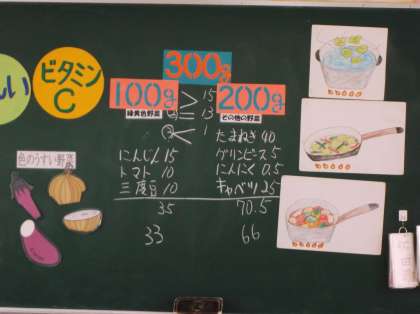 しい
ビタミン
C
300g
100g
緑黄色野菜
200g
その他の野菜
> 15
= 13
< 1
色のうすい野菜
にんじん 15
トマト 10
三度豆 10
35
33
たまねぎ 40
グリンピース 5
にんにく 0.5
キャベツ 25
70.5
66